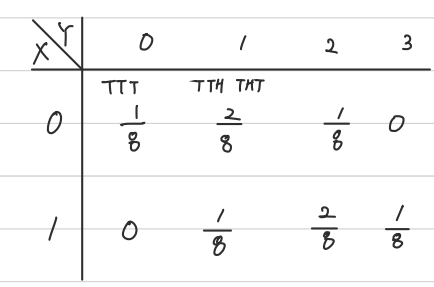 X Y 0 1 2 3
TTT TTH THT
0 1/8 2/8 1/8 0
1 0 1/8 2/8 1/8